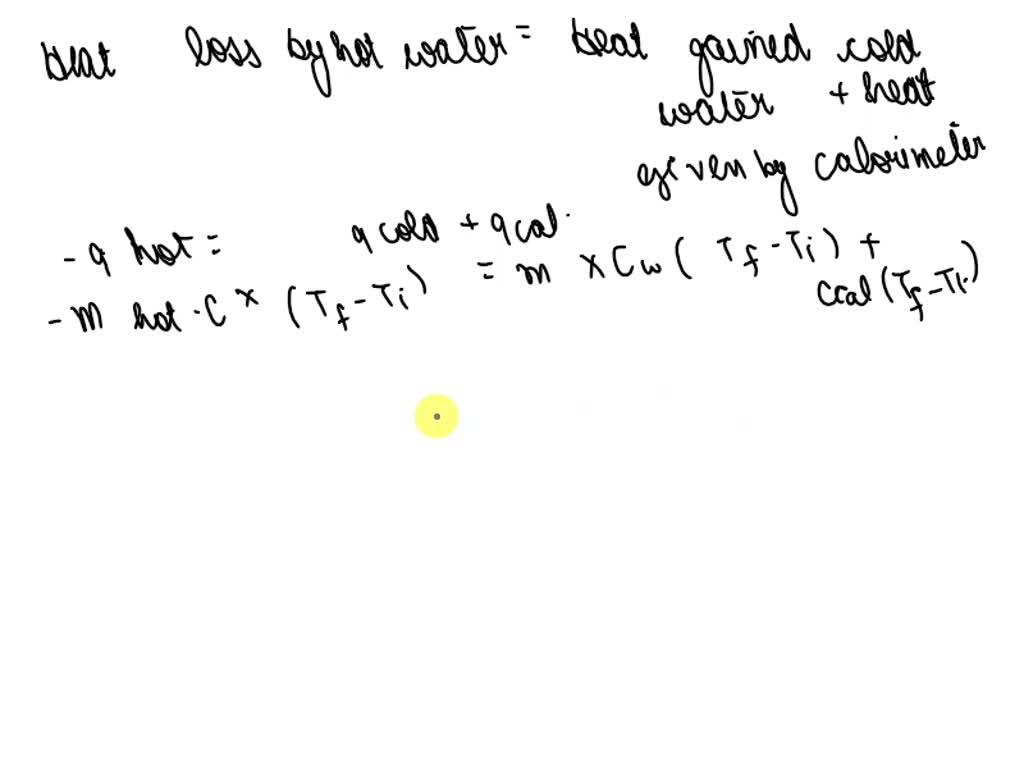 Heat loss by hot water = Heat gained cold
water + heat
given by calorimeter
- q hot = q cold + q cal.
- m hot . C × (Tf - Ti) = m × Cw ( Tf - Ti) +
Ccal (Tf - Ti)